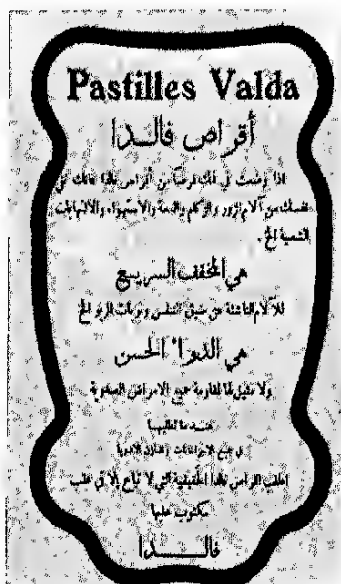 Pastilles Valda
أقراص فالدا
اذا وضعت في فمك قرصاً من أقراص فالدا فانك تقي
نفسك من آلام الزور والزكام والبحة والاستهواء والالتهابات
الشعبية الخ.
هي المخفف السريع
للآلام الناشئة عن ضيق التنفس ونوبات الربو الخ
هي الدواء الحسن
ولا مثيل لها لمقاومة جميع الامراض الصدرية
في جميع الاجزاخانات
اطلب اقراص فالدا الحقيقية التي لا تباع إلا في علب
مكتوب عليها
فالدا